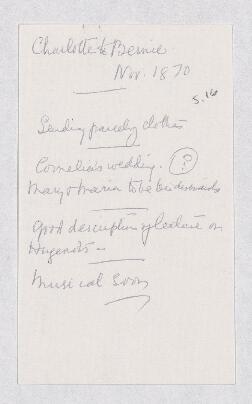 Charlotte to Bernie
Nov. 1870
5.16
Sending parcel of clothes
Cornelia's wedding. ?
Mary & Maria to be bridesmaids
Good description of lecture on
Hugenots -
Musical